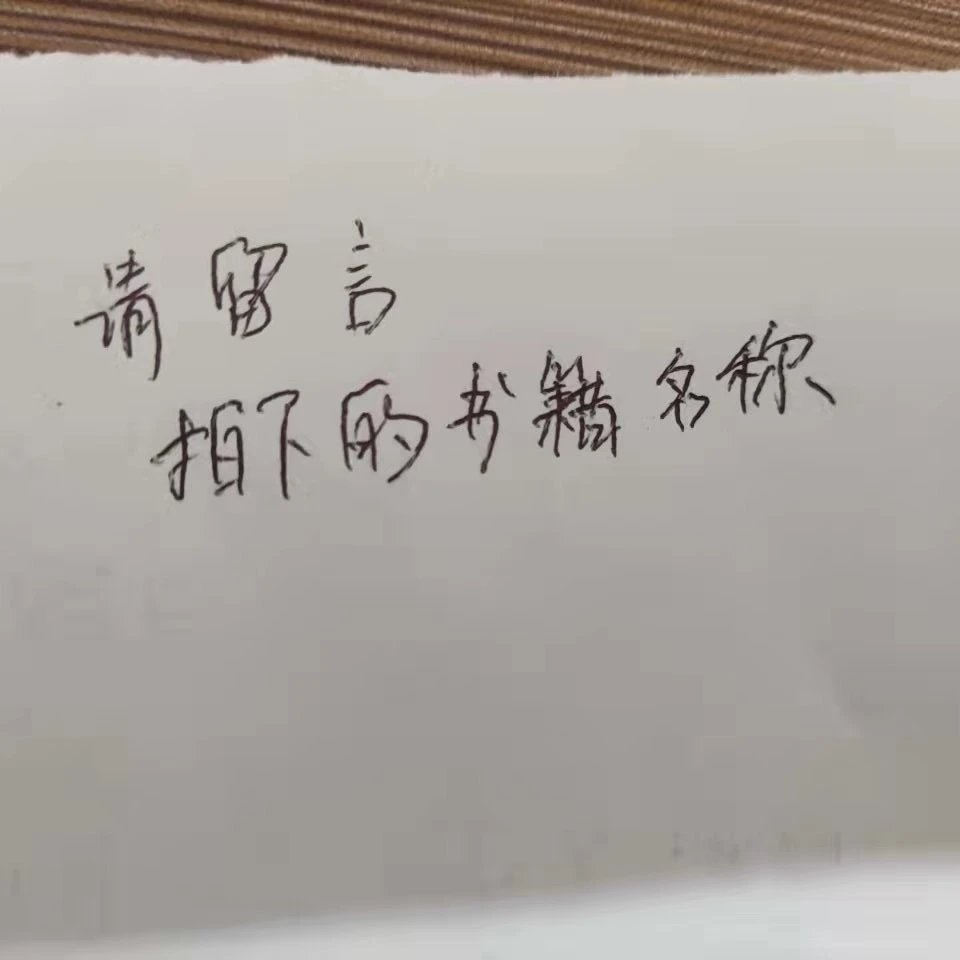 请留言
拍下的书籍名称